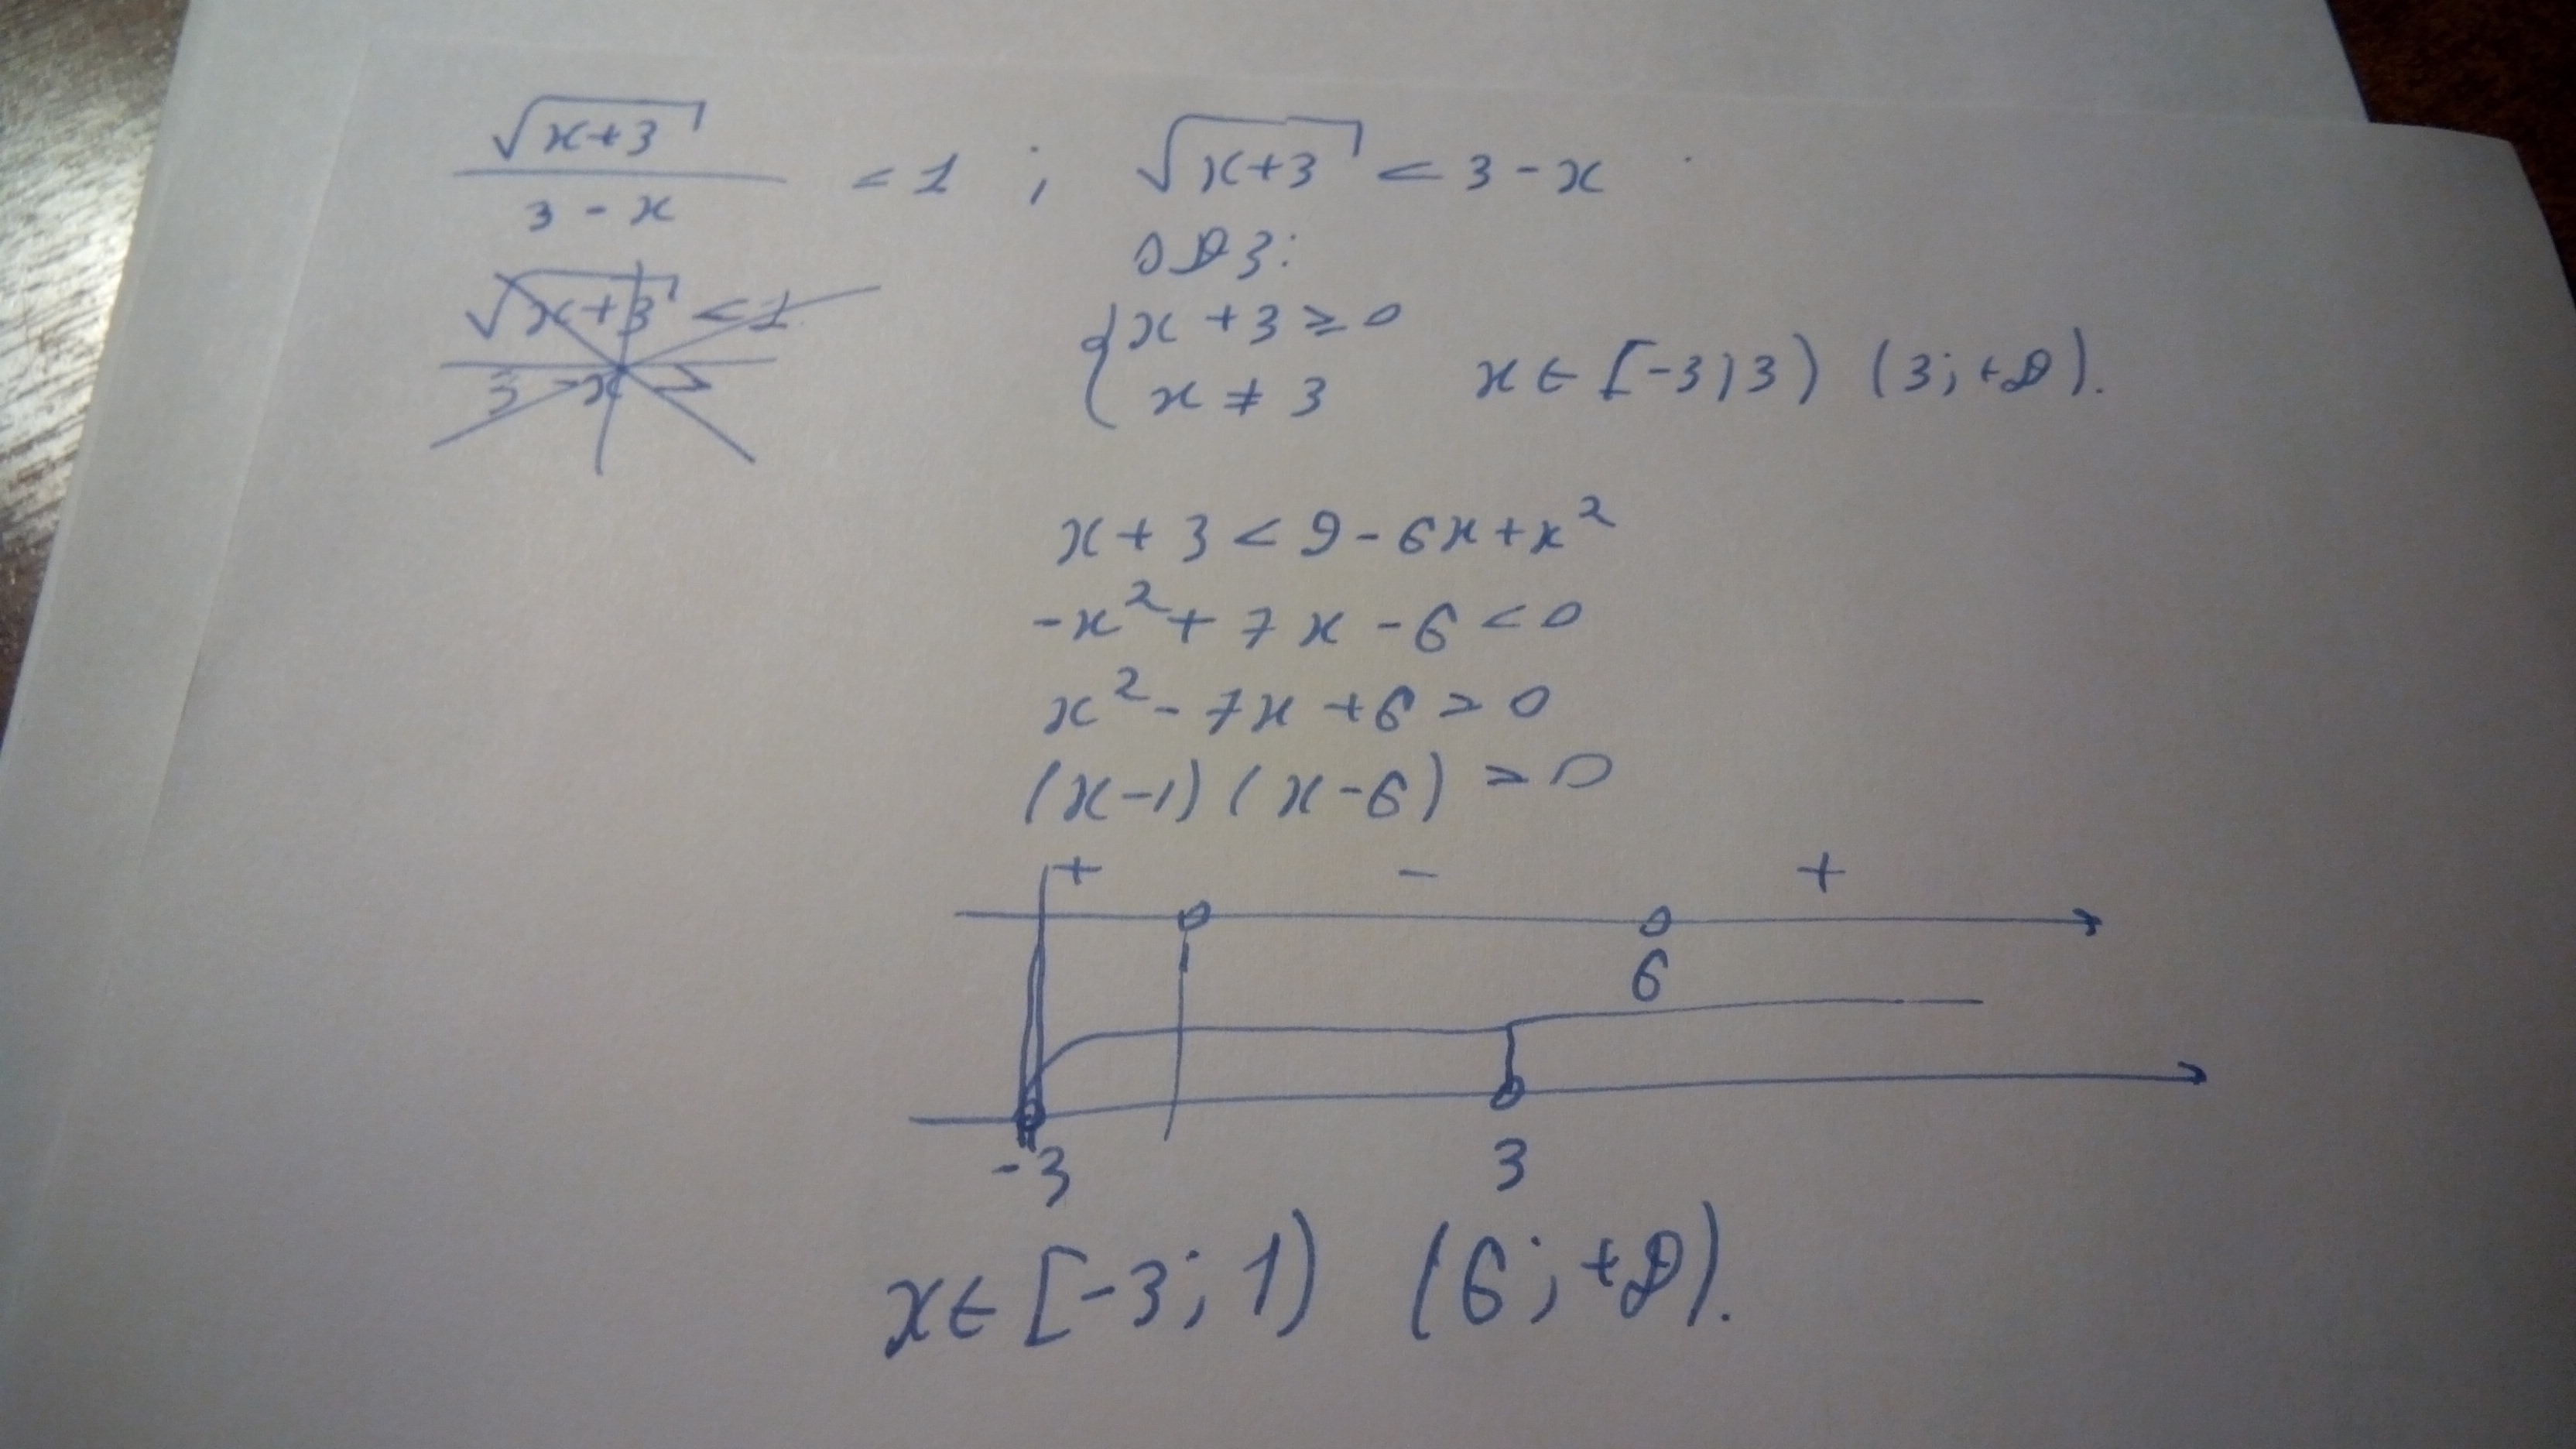 √(x+3) / (3 - x) < 1 ; √(x+3) < 3 - x
√(x+3) < 1
3 - x
ОДЗ:
{ x + 3 ≥ 0
x ≠ 3 x ∈ [-3; 3) (3; +∞).
x + 3 < 9 - 6x + x²
-x² + 7x - 6 < 0
x² - 7x + 6 > 0
(x-1) (x-6) > 0
+ - +
1 6
-3 3
x ∈ [-3; 1) (6; +∞).